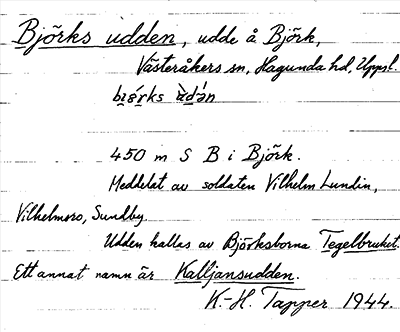 Björks udden, udde å Björk,
Västeråkers sn, Hagunda hd, Uppsl.
450 m S B i Björk.
Meddelat av soldaten Vilhelm Lundin,
Vilhelmsro, Sundby.
Udden kallas av Björksborna Tegelbruket.
Ett annat namn är Kalljansudden.
K.-H. Tapper 1944.